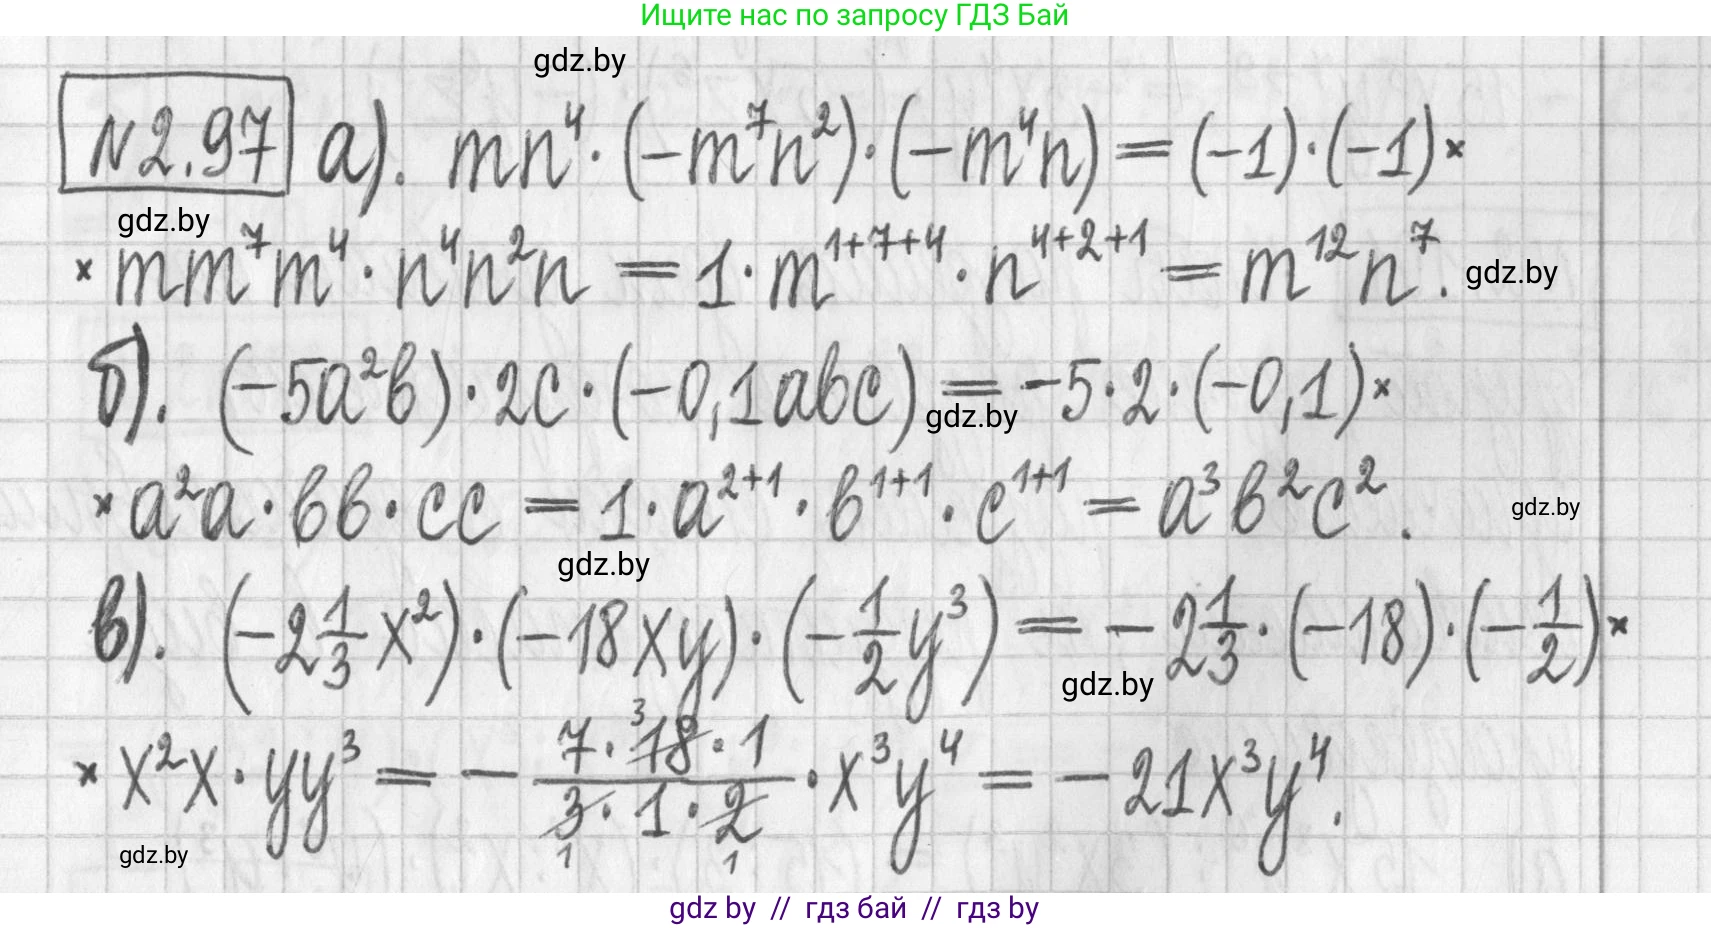 Ищите нас по запросу ГДЗ Бай
gdz.by
№2.97 а). mn⁴·(−m⁷n²)·(−m⁴n) = (−1)·(−1)×
gdz.by
×mm⁷m⁴·n⁴n²n = 1·m¹⁺⁷⁺⁴·n⁴⁺²⁺¹ = m¹²n⁷. gdz.by
б). (−5a²b)·2c·(−0,1abc) = −5·2·(−0,1)×
gdz.by
×a²a·bb·cc = 1·a²⁺¹·b¹⁺¹·c¹⁺¹ = a³b²c².
gdz.by
gdz.by
в). (−2 1/3 x²)·(−18xy)·(−1/2 y³) = −2 1/3·(−18)·(−1/2)×
gdz.by
×x²x·yy³ = − (7·18³·1)/(3₁·1·2₁)·x³y⁴ = −21x³y⁴.
gdz.by
gdz by // гдз бай // гдз by